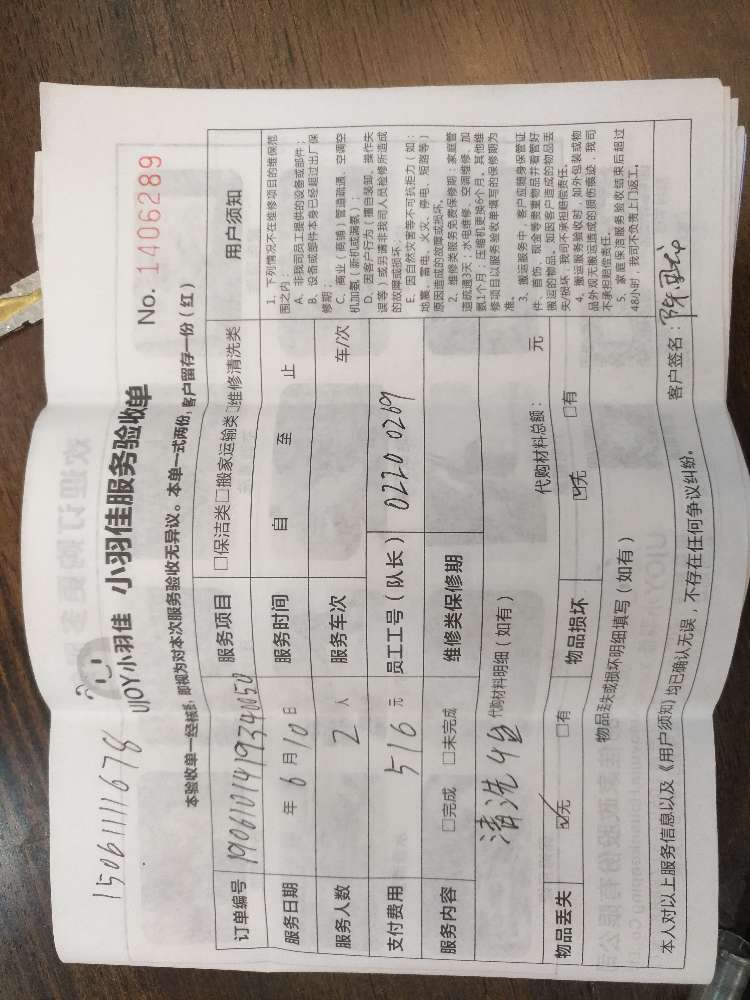 15061111678
UJOY小羽佳 小羽佳服务验收单 No. 1406289
本验收单一经核，即视为对本次服务验收无异议。本单一式两份，客户留存一份（红）
订单编号 服务项目 □保洁类□搬家运输类□维修清洗类 用户须知
服务日期 年 6 月 10 日 服务时间 自 至 止
服务人数 2 人 服务车次 车/次
支付费用 516 元 员工工号（队长） 0220 0269
服务内容 □完成 □未完成 维修类保修期
清洗 代购材料明细（如有） 代购材料总额： 元
物品丢失 ☑无 □有 物品损坏 ☑无 □有
物品丢失或损坏明细填写（如有）
1、下列情况不在维修项目的维保范
围之内：
A、非我司员工提供的设备或部件；
B、设备或部件本身已经超过出厂保
修期；
C、商业（商铺）管道疏通、空调空
机加氨（新机或漏氨）；
D、因客户行为（擅自装卸、操作失
误等）或另请非我司人员检修所造成
的故障或损坏；
E、因自然灾害等不可抗拒力（如：
地震、雷电、火灾、停电、短路等）
原因造成的故障或损坏。
2、维修类服务免费保修期：家庭管
道疏通3天；水电维修、空调维修、加
氨1个月；压缩机更换6个月。其他维
修项目以服务验收单填写的保修期为
准。
3、搬运服务中，客户应随身保管证
件、首饰、现金等贵重物品并看管好
搬运的物品，如因客户造成的物品丢
失/损坏，我司不承担赔偿责任。
4、搬运服务验收时，如外包装或物
品外观无搬运造成的损伤痕迹，我司
不承担赔偿责任。
5、家庭保洁服务验收结束后超过
48小时，我司不负责上门返工。
本人对以上服务信息以及《用户须知》均已确认无误，不存在任何争议纠纷。 客户签名：